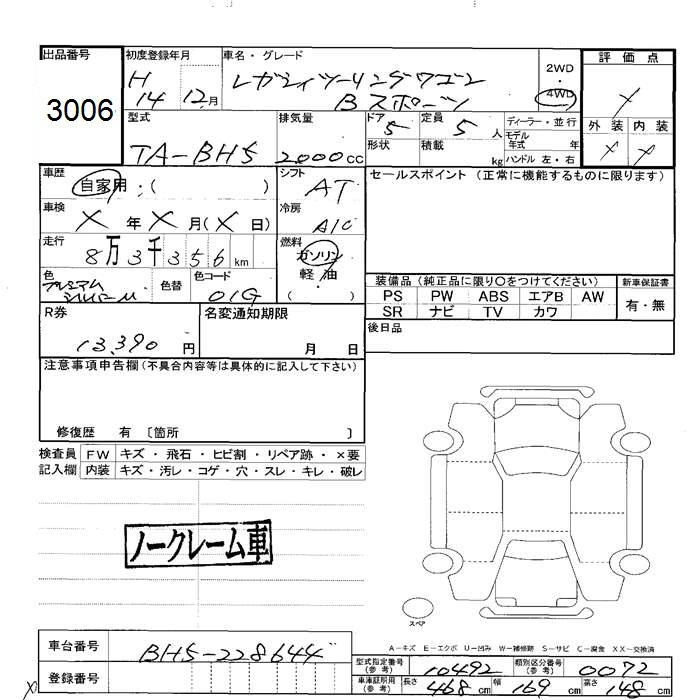 出品番号 初度登録年月 車名・グレード 評価点
3006 H 14年 12月 レガシィツーリングワゴン 2WD・4WD
Bスポーツ
型式 排気量 ドア 5 定員 5人 ディーラー・並行 外装 内装
モデル年式 年
TA-BH5 2000cc 形状 積載 kg ハンドル 左・右
車歴 自家用:( ) シフト AT セールスポイント (正常に機能するものに限ります)
車検 X年X月(X日) 冷房 A/C
走行 8万3千356km 燃料 ガソリン
軽油
( )
色 プレミアムシルバーM 色替 色コード 01G
装備品 (純正品に限り○をつけてください) 新車保証書
PS PW ABS エアB AW 有・無
SR ナビ TV カワ
R券 13,390円 名変通知期限 月 日 後日品
注意事項申告欄(不具合内容等は具体的に記入して下さい)
修復歴 有 〔箇所 〕
検査員 FW キズ・飛石・ヒビ割・リペア跡・×要
記入欄 内装 キズ・汚レ・コゲ・穴・スレ・キレ・破レ
ノークレーム車
スペア
A-キズ E-エクボ U-凹み W-補修跡 S-サビ C-腐食 XX-交換済
車台番号 BH5-228644
型式指定番号(参考) 10492 類別区分番号(参考) 0072
登録番号 車庫証明用(参考) 長さ 468cm 幅 169cm 高さ 148cm